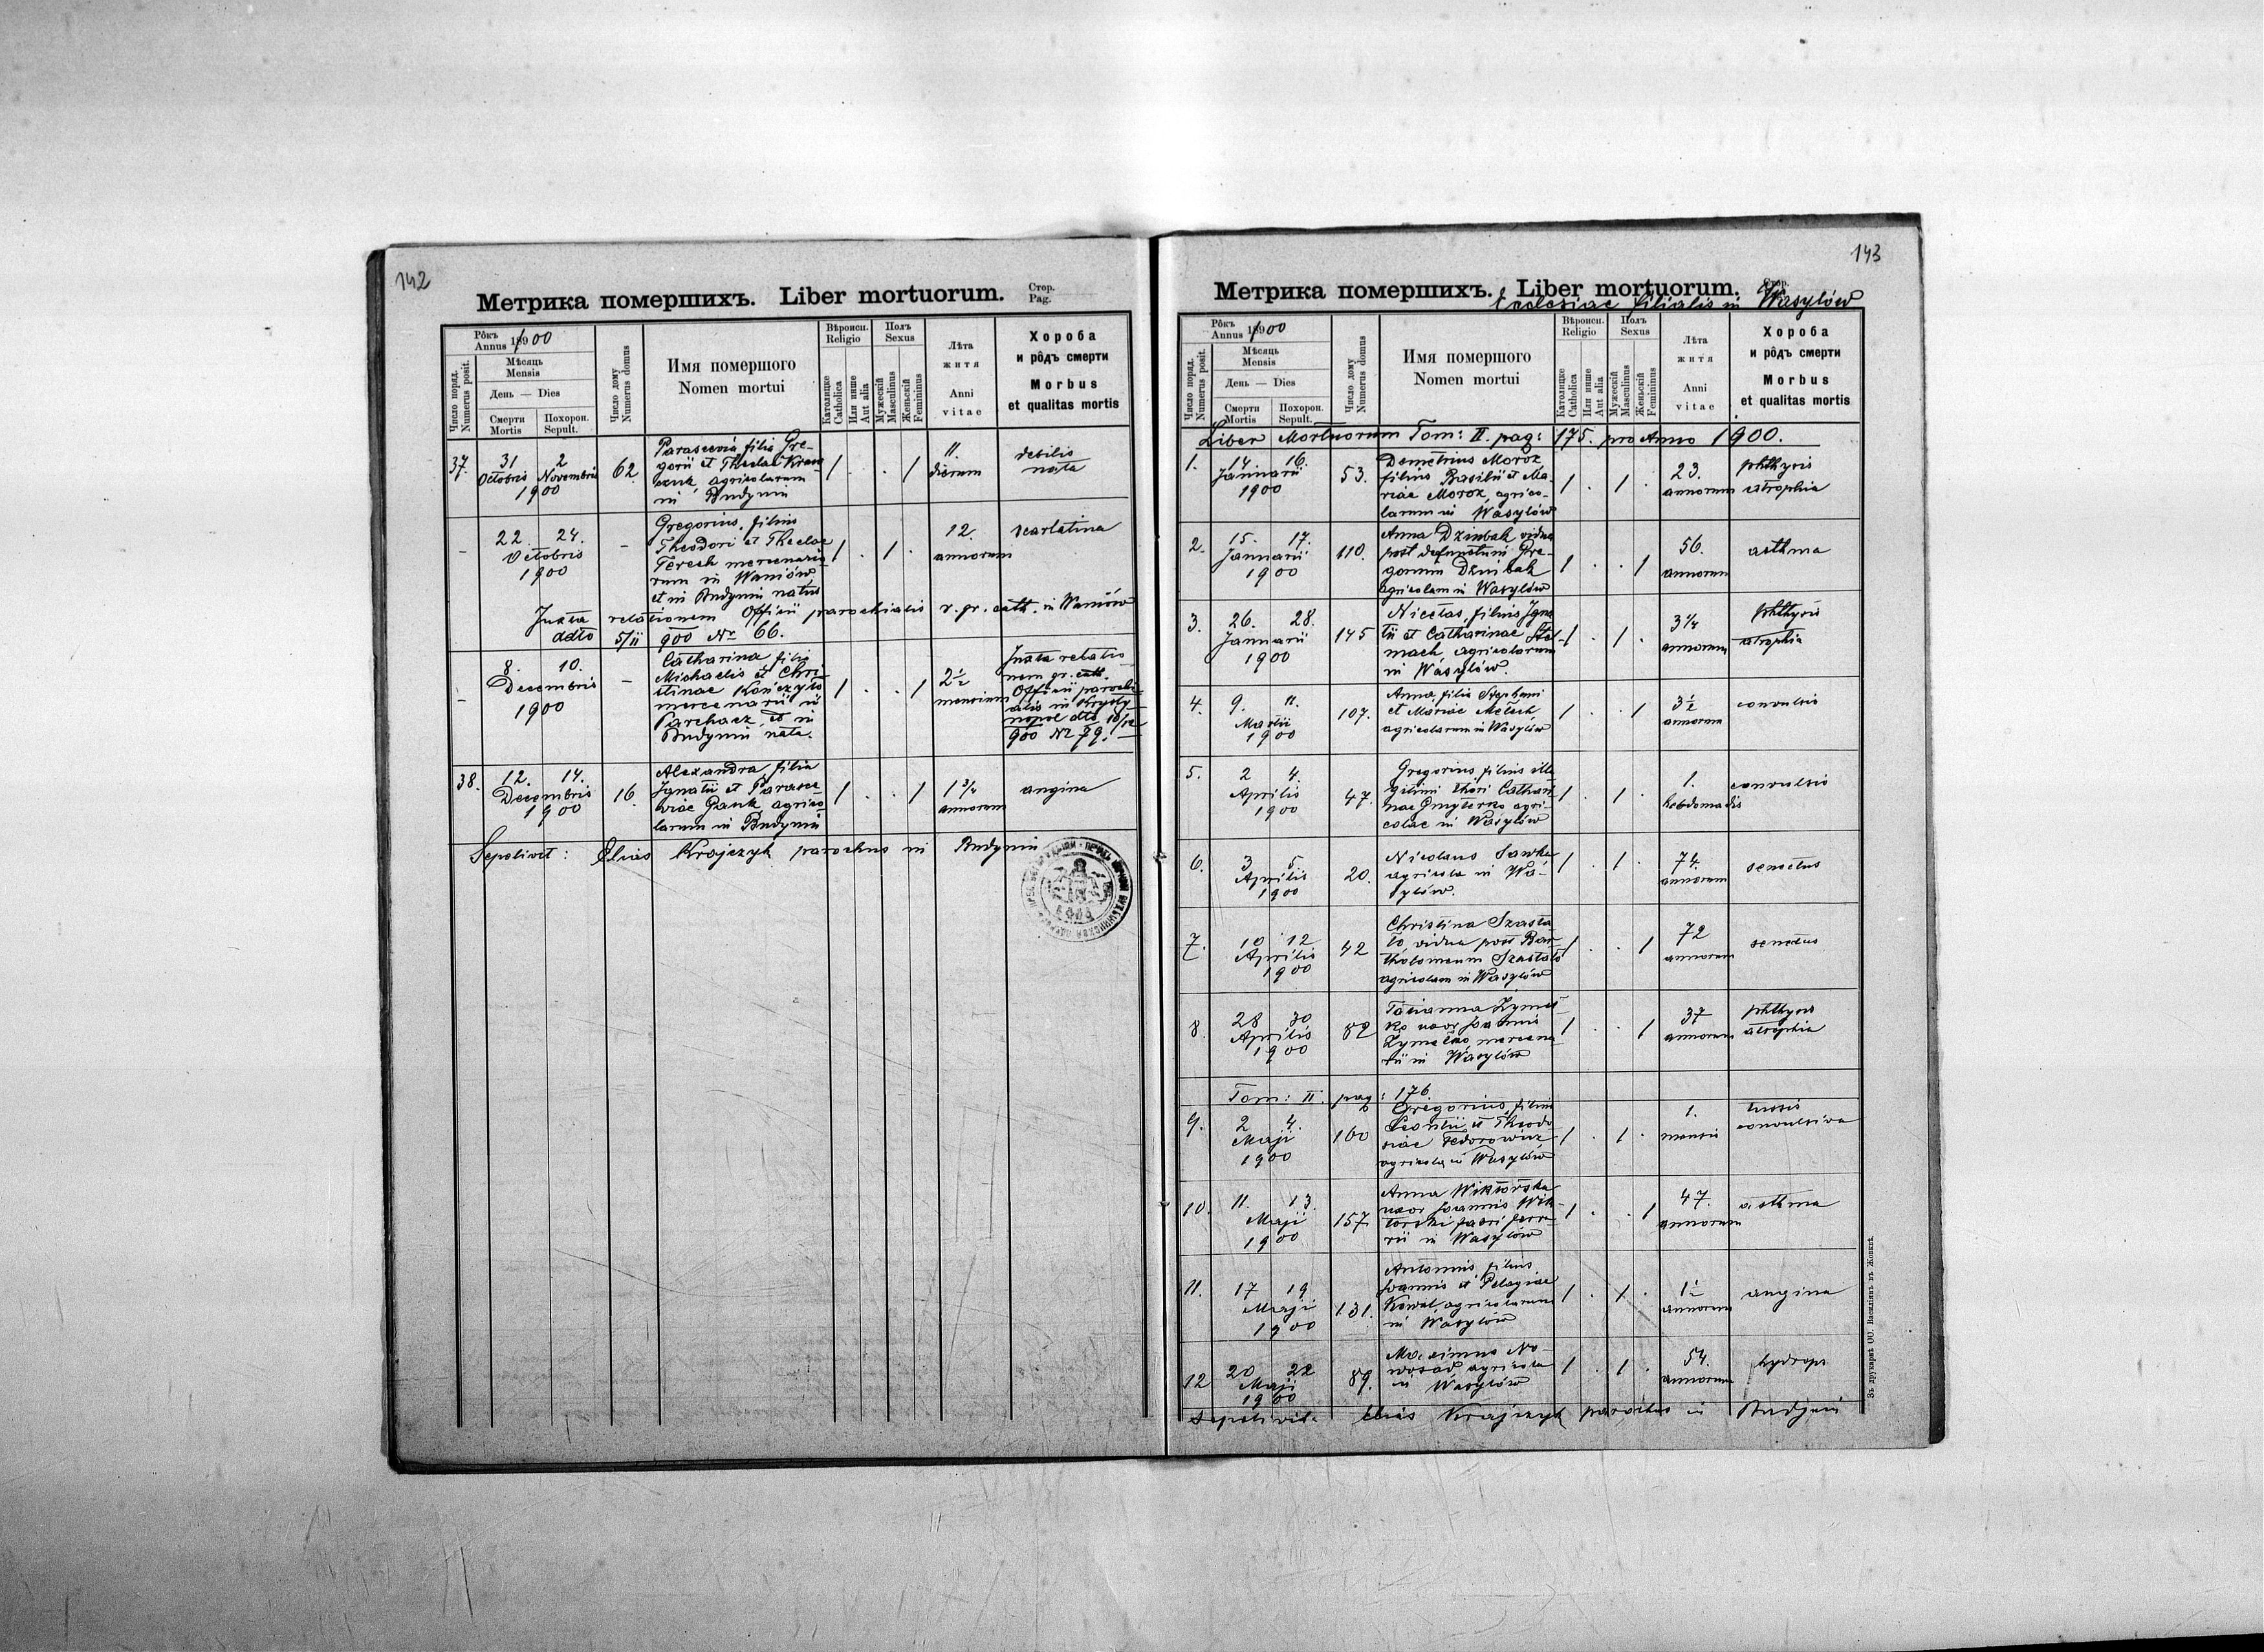 142
Метрика помершихъ. Liber mortuorum. Стор. Pag.
Рôкъ Annus 1900
Число поряд. Numerus posit.
Мѣсяць Mensis
День — Dies
Смерти Mortis
Похорон. Sepult.
Число дому Numerus domus
Имя помершого
Nomen mortui
Вѣроисп. Religio
Католицке Catholica
Или нише Aut alia
Полъ Sexus
Мужескій Masculinus
Женьскій Femininus
Лѣта житя
Anni vitae
Хороба
и рôдъ смерти
Morbus
et qualitas mortis
37. 31 Octobris 2 Novembris 1900 62.
Parascevia filia Gre-
gorii et Theclae
agricolarum
in Budynin
1 . . 1 11. dierum debilis nata
- 22. 24. Octobris 1900 -
Gregorius, filius
Theodori et Theclae
Terech mercenario-
rum in Waniów
et in Budynin natus
1 . 1 . 12. annorum scarlatina
Juxta relationem Officii parochialis r. gr. cath. in Waniów
ddto 5/11 900 Nr 66.
- 8. 10. Decembris 1900 -
Catharina filia
Michaelis et Chri-
stinae Kończyło
mercenarii in
Parchacz, et in
Budynin nata.
1 . . 1 2½ mensium
Juxta relatio
nem gr. cath.
Officii parochi-
alis in Krysty-
nopol dto 10/12
900 Nr 79.
38. 12. 14. Decembris 1900 16.
Alexandra, filia
Ignatii et Parasce-
viae Gauk, agrico
larum in Budynin
1 . . 1 1¾ annorum angina
Sepelivit: Elias Krajczyk parochus in Budynin
143
Метрика помершихъ. Liber mortuorum. Стор.
Ecclesiae filialis in Wasylów
Рôкъ Annus 1900
Число поряд. Numerus posit.
Мѣсяць Mensis
День — Dies
Смерти Mortis
Похорон. Sepult.
Число дому Numerus domus
Имя помершого
Nomen mortui
Вѣроисп. Religio
Католицке Catholica
Или нише Aut alia
Полъ Sexus
Мужескій Masculinus
Женьскій Femininus
Лѣта житя
Anni vitae
Хороба
и рôдъ смерти
Morbus
et qualitas mortis
Liber Mortuorum Tom: II. pag: 175. pro Anno 1900.
1. 14. 16. Januarii 1900 53.
Demetrius Moroz
filius Basilii et Ma-
riae Moroz, agrico-
larum in Wasylów
1 . 1 . 23. annorum phthysis atrophia
2. 15. 17. Januarii 1900 110.
Anna Dzinbak vidua
post defunctum Gre-
gorium Dzinbak
agricolam in Wasylów
1 . . 1 56. annorum asthma
3. 26. 28. Januarii 1900 145
Nicetas, filius Igna
tii et Catharinae Stel-
mach, agricolarum
in Wasylów.
1 . 1 . 3¼ annorum phthysis atrophia
4. 9. 11. Martii 1900 107.
Anna, filia Stephani
et Mariae Melech
agricolarum in Wasylów
1 . . 1 3½ annorum convulsio
5. 2 4. Aprilis 1900 47.
Gregorius, filius ille
gitimi thori Cathari
nae agri-
colae in Wasylów
1 . 1 . 1. hebdomadis convulsio
6. 3 5. Aprilis 1900 20.
Nicolaus Sawka
agricola in Wa-
sylów.
1 . 1 . 74. annorum senectus
7. 10 12 Aprilis 1900 42
Christina Szasta
ło, vidua post Bar
tholomeum Szastało
agricolam in Wasylów
1 . . 1 72 annorum senectus
8. 28 30 Aprilis 1900 82
Tatianna Zymeł-
ko uxor Joannis
Zymełko, mercena
rii in Wasylów
1 . . 1 37 annorum phthysis atrophia
Tom: II. pag: 176.
9. 2 4. Maji 1900 160
Gregorius, filius
Leontii et Theodo
siae Fedorowicz
agricola in Wasylów
1 . 1 . 1. mensis tussis convulsiva
10. 11. 13. Maji 1900 157
Anna Wiktorska
uxor Joannis Wik-
torski fabri ferra-
rii in Wasylów
1 . . 1 47. annorum asthma
11. 17 19 Maji 1900 131.
Antonius, filius
Joannis et Pelagiae
Kowal, agricolarum
in Wasylów
1 . 1 . 1½ annorum angina
12 20 22 Maji 1900 89.
Maximus No-
wosad, agricola
in Wasylów
1 . 1 . 54. annorum hydrops
Sepelivit: Elias Krajczyk parochus in Budynin
Зъ друкарнѣ ОО. Василіянъ въ Жовквѣ.